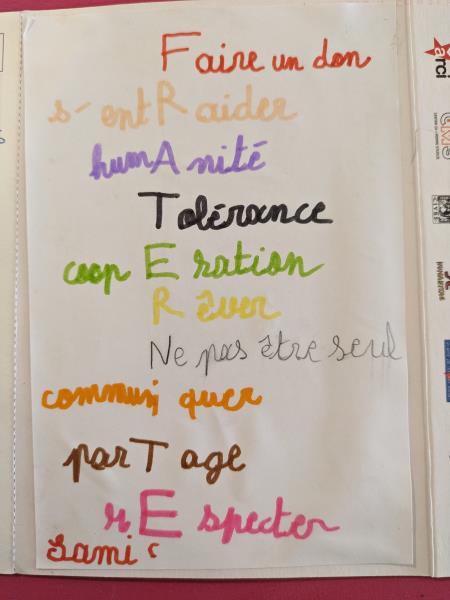 Faire un don
s'entRaider
humAnité
Tolérance
coopEration
Rêver
Ne pas être seul
communiquer
parTage
rEspecter
Sami
arci